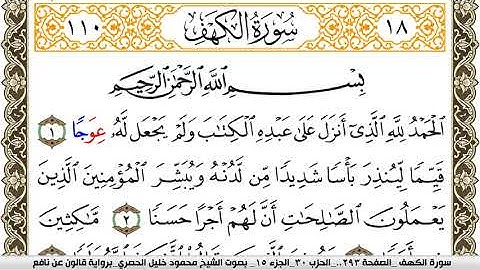 ١٨ سُورَةُ الْكَهْفِ ١١٠
بِسْمِ اللَّهِ الرَّحْمَٰنِ الرَّحِيمِ
الْحَمْدُ لِلَّهِ الَّذِي أَنزَلَ عَلَىٰ عَبْدِهِ الْكِتَابَ وَلَمْ يَجْعَل لَّهُ عِوَجًا ١
قَيِّمًا لِّيُنذِرَ بَأْسًا شَدِيدًا مِّن لَّدُنْهُ وَيُبَشِّرَ الْمُؤْمِنِينَ الَّذِينَ
يَعْمَلُونَ الصَّالِحَاتِ أَنَّ لَهُمْ أَجْرًا حَسَنًا ٢ مَّٰكِثِينَ
سورة الكهف _الصفحة ٢٩٣.._ الحزب ٣٠_الجزء ١٥_ بصوت الشيخ محمود خليل الحصري_برواية قالون عن نافع